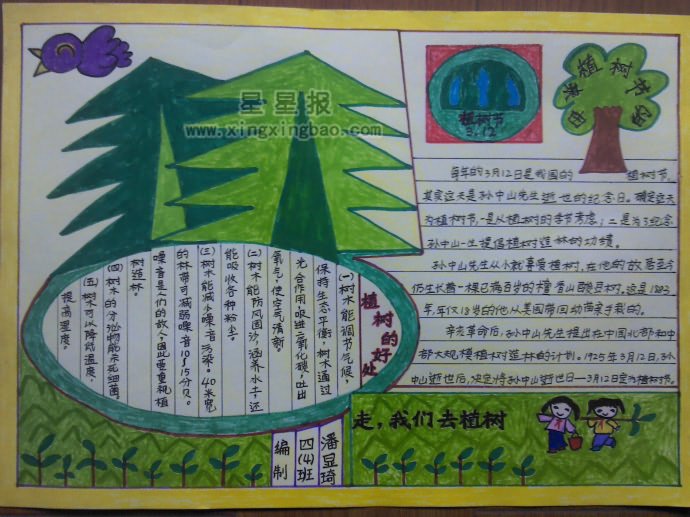 星星报
www.xingxingbao.com
植树节
3.12
植树节的由来
每年的3月12日是我国的 植树节,
其实这天是孙中山先生逝世的纪念日。确定这天
为植树节,一是从植树的季节考虑;二是为了纪念
孙中山一生提倡植树造林的功绩。
孙中山先生从小就喜爱植树,在他的故居至今
仍生长着一棵已满百岁的檀香山酸豆树。这是1883
年,年仅18岁的他从美国带回动栽的。
辛亥革命后,孙中山先生提出在中国北部和中
部大规模植树造林的计划。1925年3月12日,孙
中山逝世后,决定将孙中山逝世日—3月12日定为植树节。
植树的好处
(一)树木能调节气候,
保持生态平衡,树木通过
光合作用,吸进二氧化碳,吐出
氧气,使空气清新。
(二)树木能防风固沙,涵养水土,还
能吸收各种粉尘。
(三)树木能减少噪音污染。40米宽
的林带可减弱噪音10-15分贝。
噪音是人们的敌人,因此要重视植
树造林。
(四)树木的分泌物能杀死细菌
(五)树木可以降低温度,
提高湿度。
走,我们去植树
潘显琦
四(4)班
编制